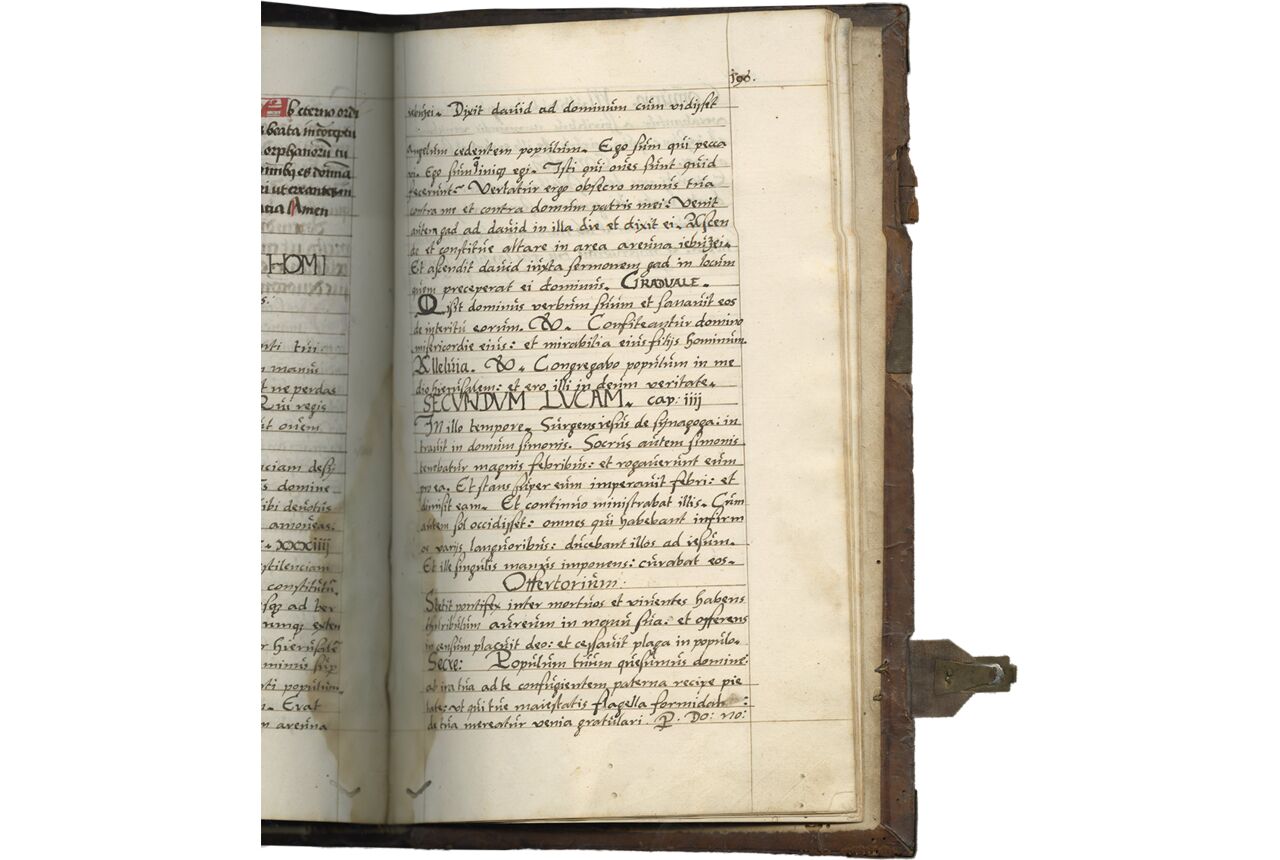 b eterno ordi
beata in cōceptu
orphanorū tu
es domīa
ri ut creantes in
Amen
HOMI
nti tui
manū
t ne perdas
Qui regis
ut ovem
nciam desy
s domine
ibi devotus
amoveas.
XXXiiij
stilenciam
constitutū.
sq ad ber
umq exten
r hierusalē
minus sup
ti populum.
Erat
areuna
196.
iebuzei. Dixit david ad dominum cum vidisset
angelum cedentem populum. Ego sum qui pecca
vi. Ego sum iniq egi. Isti qui oves sunt quid
fecerunt? Vertatur ergo obsecro manus tua
contra me et contra domum patris mei. Venit
autem gad ad david in illa die et dixit ei. Ascen
de et constitue altare in area areuna iebuzei.
Et ascendit david iuxta sermonem gad in locum
quem preceperat ei dominus. GRADUALE.
Misit dominus verbum suum et sanavit eos
de interitu eorum. Confiteantur domino
misericordie eius: et mirabilia eius filijs hominum.
Alleluia. Congregabo populum in me
dio hierusalem: et ero illi in deum veritate.
SECUNDUM LUCAM. cap: iiij
In illo tempore. Surgens iesus de synagoga: in
travit in domum simonis. Socrus autem simonis
tenebatur magnis febribus: et rogaverunt eum
pro ea. Et stans super eum imperavit febri: et
dimisit eam. Et continuo ministrabat illis. Cum
autem sol occidisset: omnes qui habebant infirm
os varijs languoribus: ducebant illos ad iesum.
Et ille singulis manus imponens: curabat eos.
Offertorium.
Stetit pontifex inter mortuos et viventes habens
thuributum aureum in manu sua: et offerens
incensum placuit deo: et cessavit plaga in populo.
Secre: Populum tuum quesumus domine:
ab ira tua ad te confugientem paterna recipe pie
tate: ut qui tue maiestatis flagella formidan
de tua mereatur venia gratulari. P. Do: no: